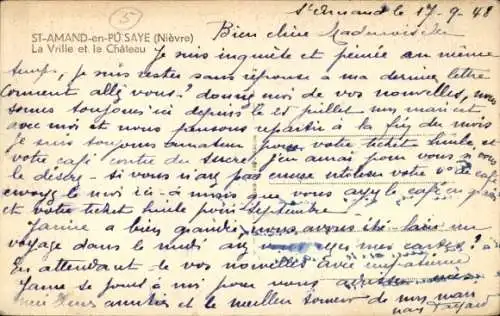 5
St Amand le 17-9-48
ST-AMAND-en-PUISAYE (Nièvre)
La Vrille et le Château
Bien chère Mademoiselle
Je suis inquiète et peinée au même
temps, je suis restée sans réponse à ma dernière lettre
comment allé vous? donnez moi de vos nouvelles, nous
sommes toujours ici depuis le 25 juillet mon mari est
avec moi et nous pensons repartir à la fin du mois
je suis toujours amateur pour votre ticket huile, et
votre café contre du sucre, j'en aurai pour vous si vous
le désirez - si vous n'avez pas encore utiliser votre
envoyez le moi ici - à moins que vous ayez le café
et votre ticket huile pour Septembre
Janine a bien grandie, nous avons été faire un
voyage dans le midi avez vous reçu mes cartes?
En attendant de vos nouvelles avec impatience
Janine se joint à moi pour vous adresser
amitiés et le meilleur souvenir de mon mari